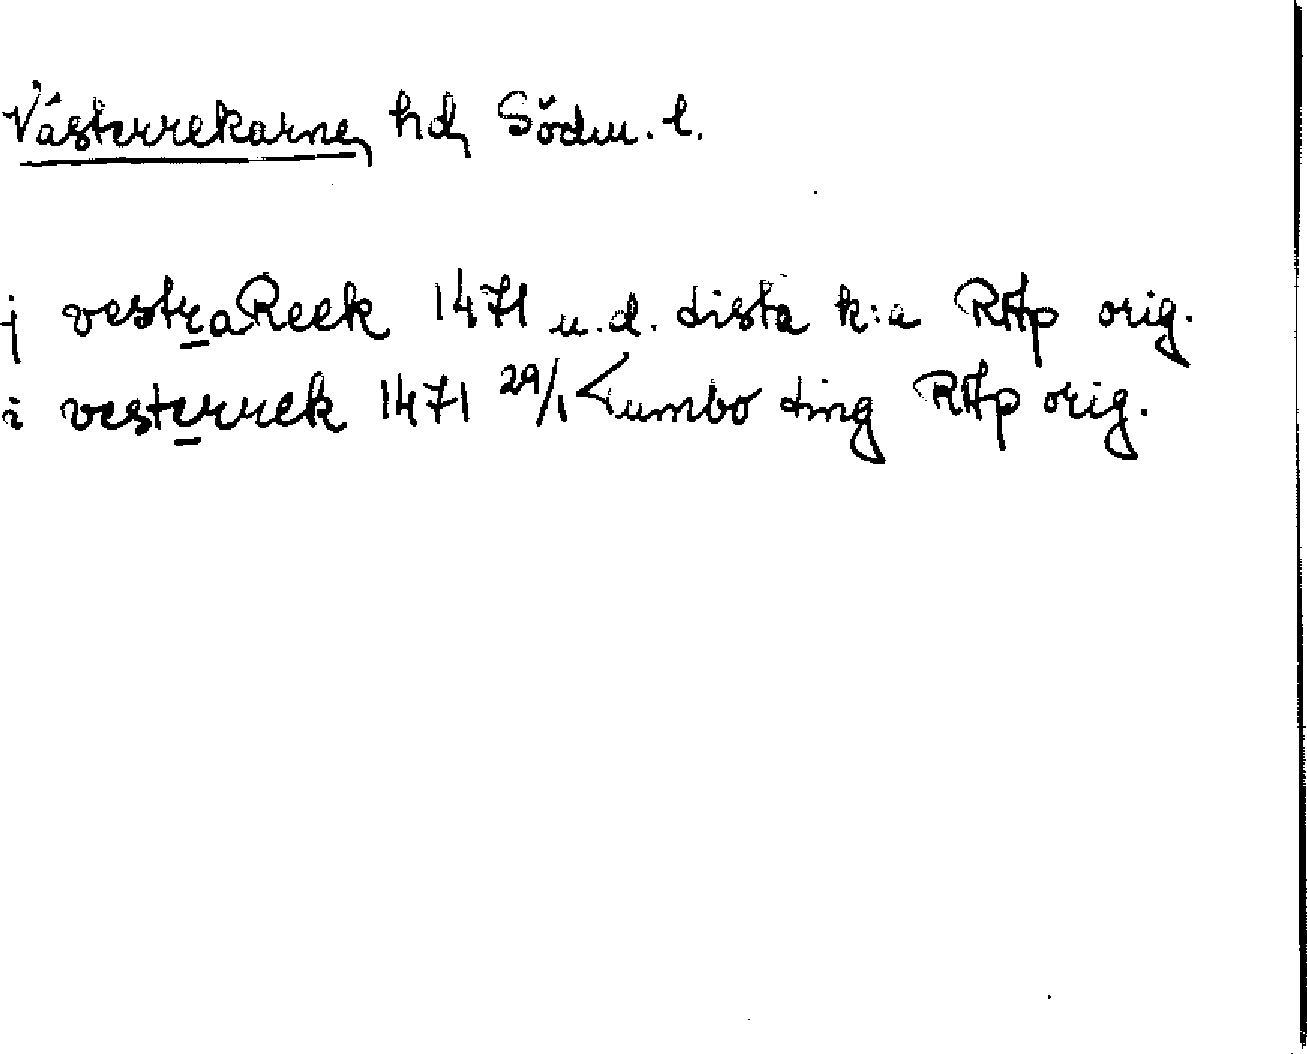 Västerrekarne, hd, Södm. l.
j vestraReek 1471 u.d. Lista k:a RAp orig.
i vesterrek 1471 29/1 Kumbo ting RAp orig.